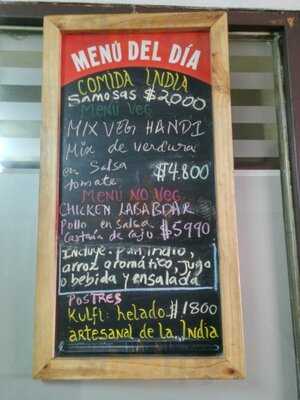 MENÚ DEL DÍA
COMIDA INDIA
Samosas $2000
MENU VEG
MIX VEG HANDI
Mix de verdura
en salsa
tomate $4.800
MENU NO VEG
CHICKEN LABABDAR
Pollo en salsa
Castaña de Caju $5990
Incluye: Pan indio,
arroz aromático, jugo
o bebida y ensalada
POSTRES
Kulfi: helado $1800
artesanal de la India